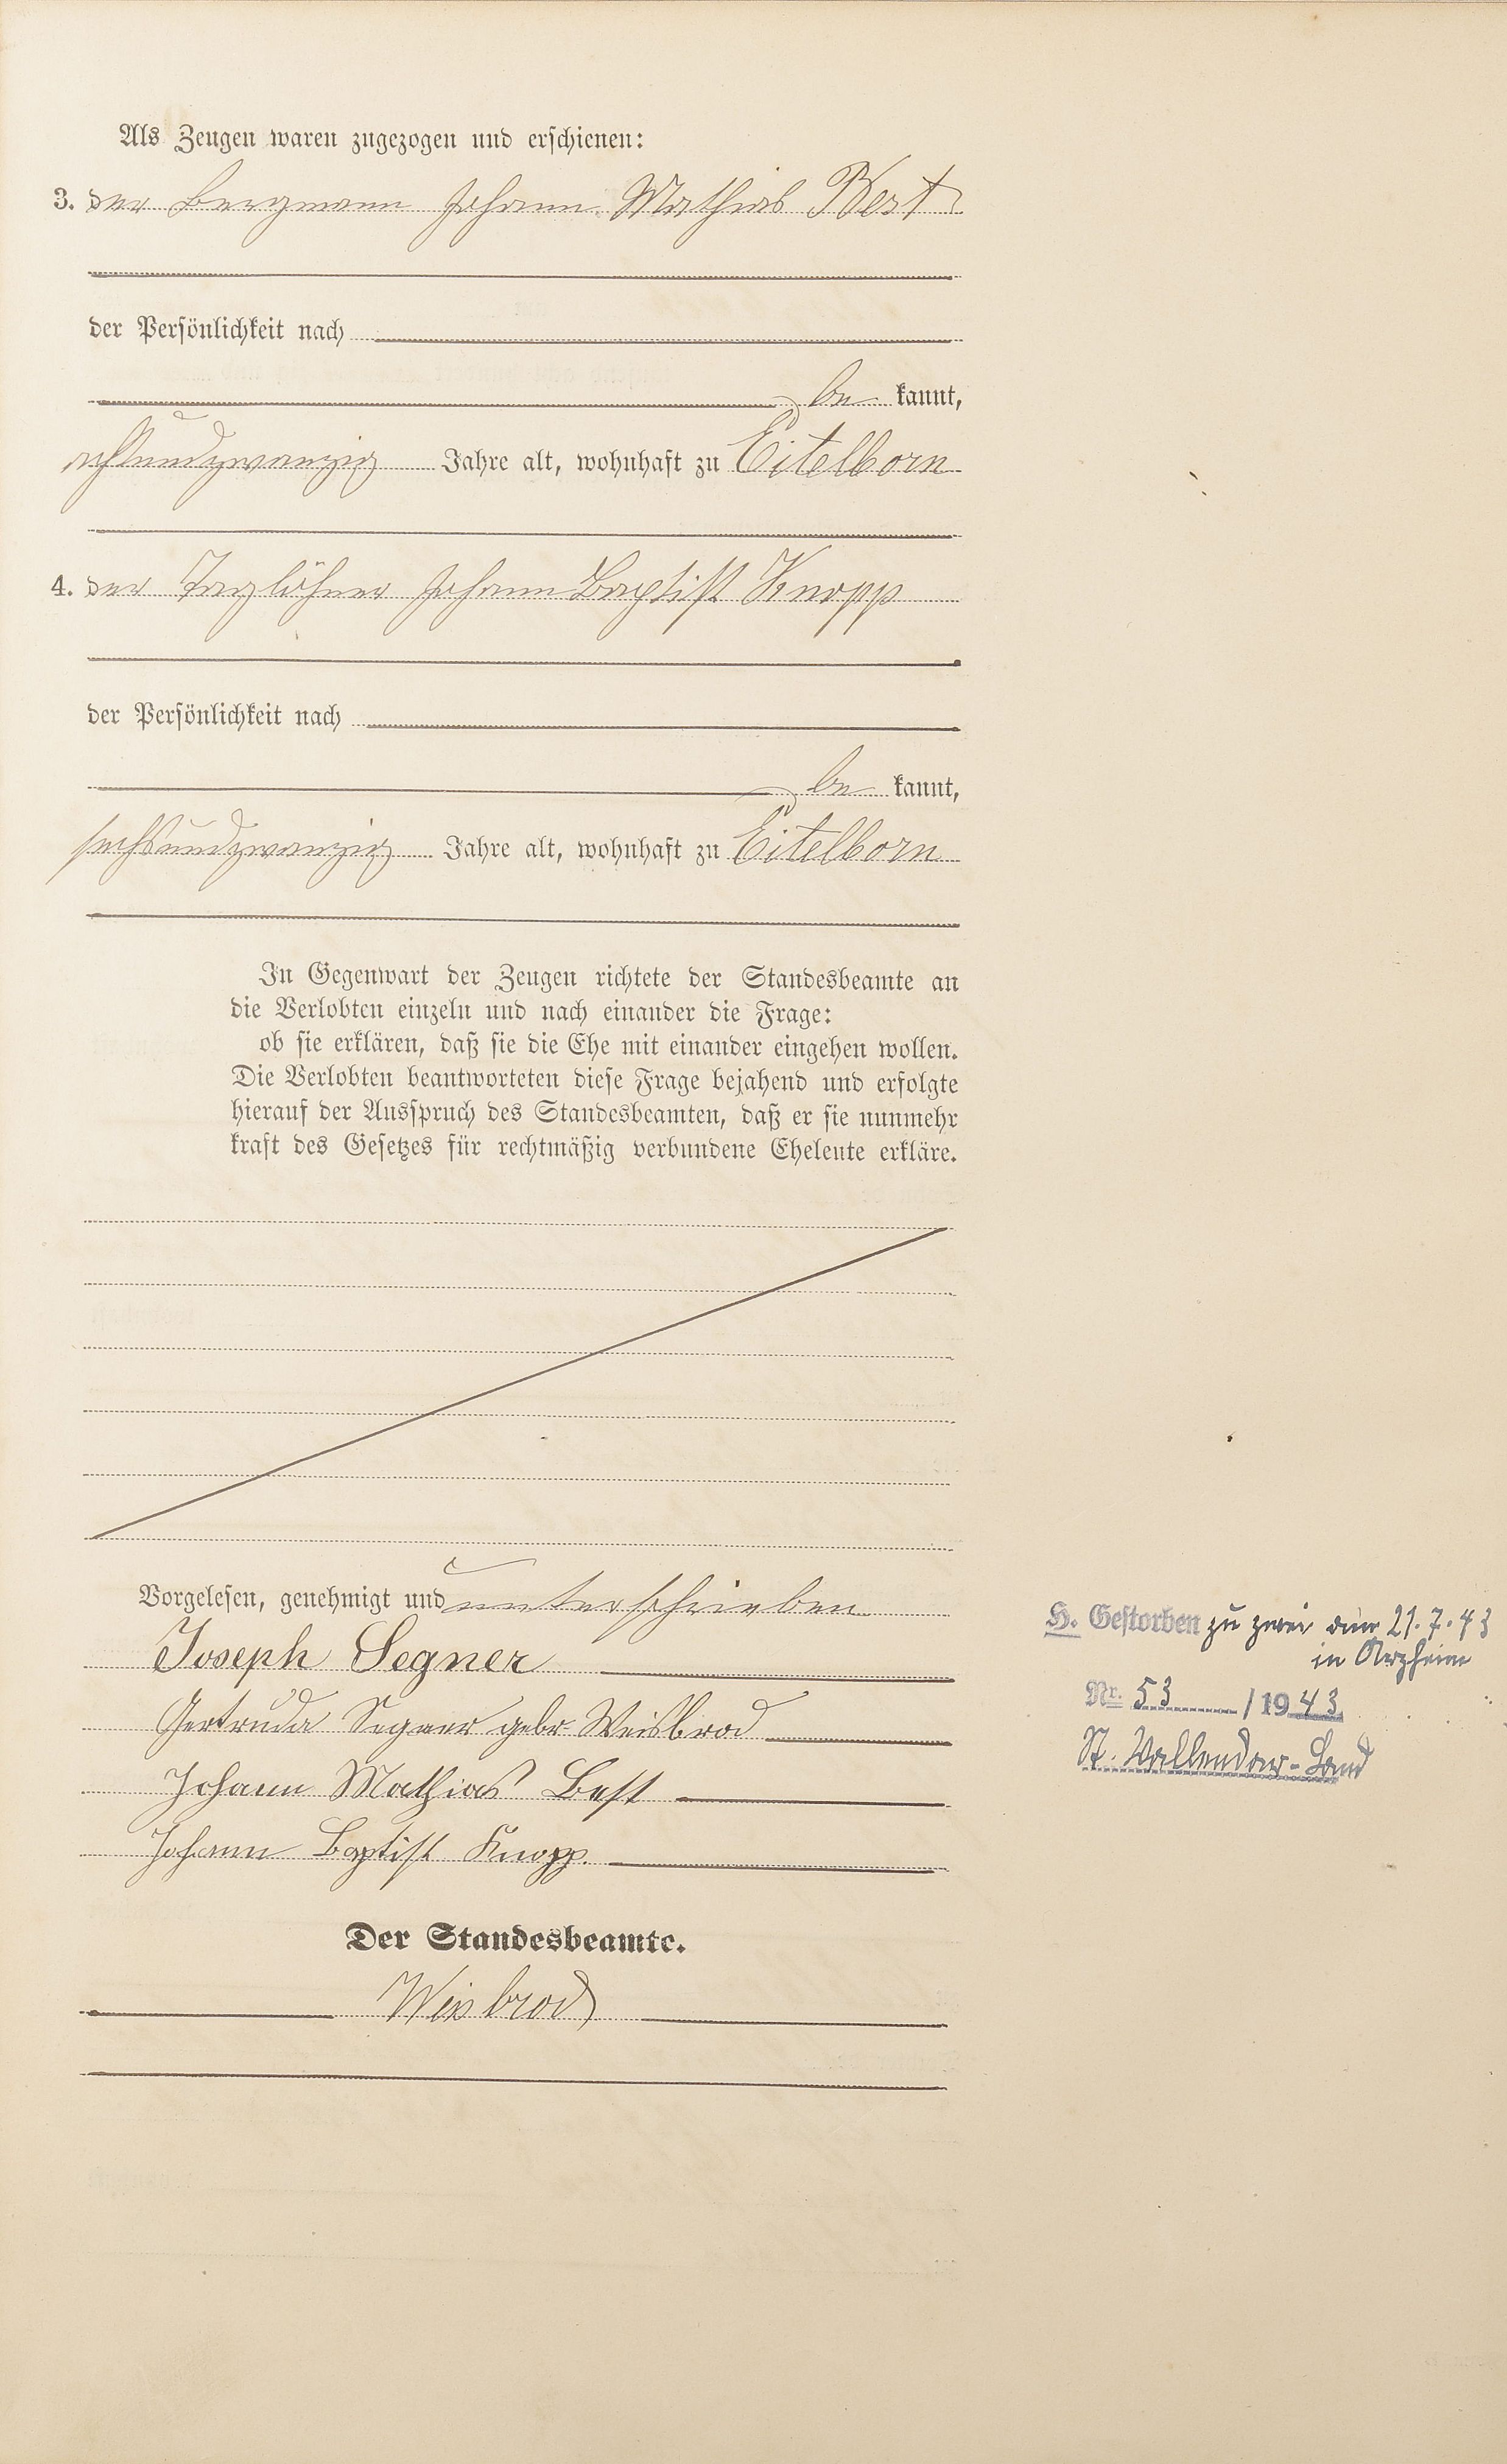 Als Zeugen waren zugezogen und erschienen:
3. der Bergmann Johann Mathias Best
der Persönlichkeit nach
be kannt,
achtundzwanzig Jahre alt, wohnhaft zu Eitelborn
4. der Taglöhner Johann Baptist Knopp
der Persönlichkeit nach
be kannt,
sechsundzwanzig Jahre alt, wohnhaft zu Eitelborn
In Gegenwart der Zeugen richtete der Standesbeamte an
die Verlobten einzeln und nach einander die Frage:
ob sie erklären, daß sie die Ehe mit einander eingehen wollen.
Die Verlobten beantworteten diese Frage bejahend und erfolgte
hierauf der Ausspruch des Standesbeamten, daß er sie nunmehr
kraft des Gesetzes für rechtmäßig verbundene Eheleute erkläre.
Vorgelesen, genehmigt und unterschrieben
Joseph Segner
Gertruda Segner gebr. Weisbrod
Johann Mathias Best
Johann Baptist Knopp.
Der Standesbeamte.
Wisbrod
H. Gestorben zu zwei am 21.7.43
in Arzheim
Nr. 53 / 1943.
St. Vallendar-Land